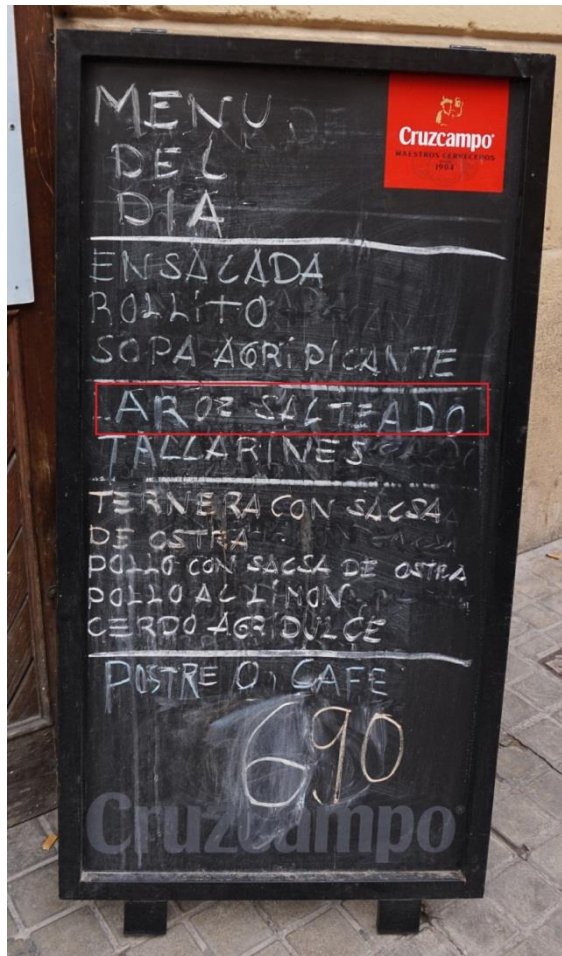 MENU
DEL
DIA
Cruzcampo
MAESTROS CERVECEROS
1904
ENSALADA
ROLLiTO
SOPA AGRiPiCANTE
AROZ SALTEADO
TALLARINES
TERNERA CON SALSA
DE OSTRA
POLLO CON SALSA DE OSTRA
POLLO AL LiMON
CERDO AGRiDULCE
POSTRE O CAFE
6,90
Cruzcampo